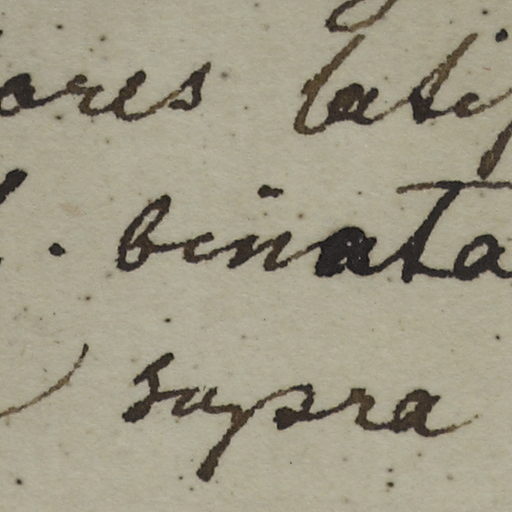 ares lati
. binata
supra